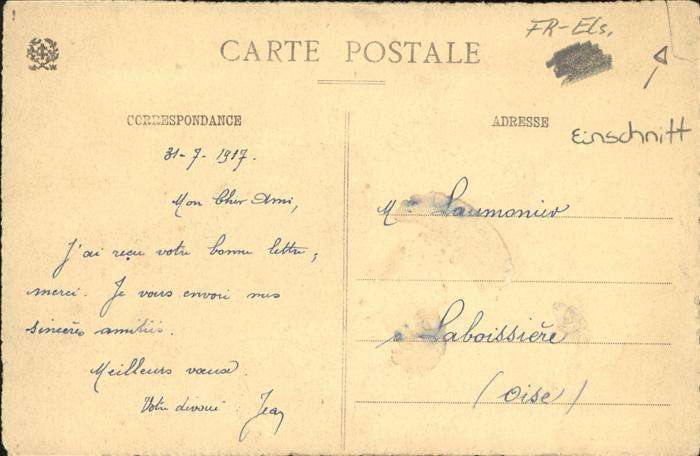 FR-Els.
CARTE POSTALE
CORRESPONDANCE
ADRESSE
Einschnitt
31-7-1917.
Mon Cher Ami,
J'ai reçu votre bonne lettre,
merci. Je vous envoie mes
sincères amitiés.
Meilleurs vœux.
Votre dévoué. Jean
Laumonier
à Laboissière
(Oise)